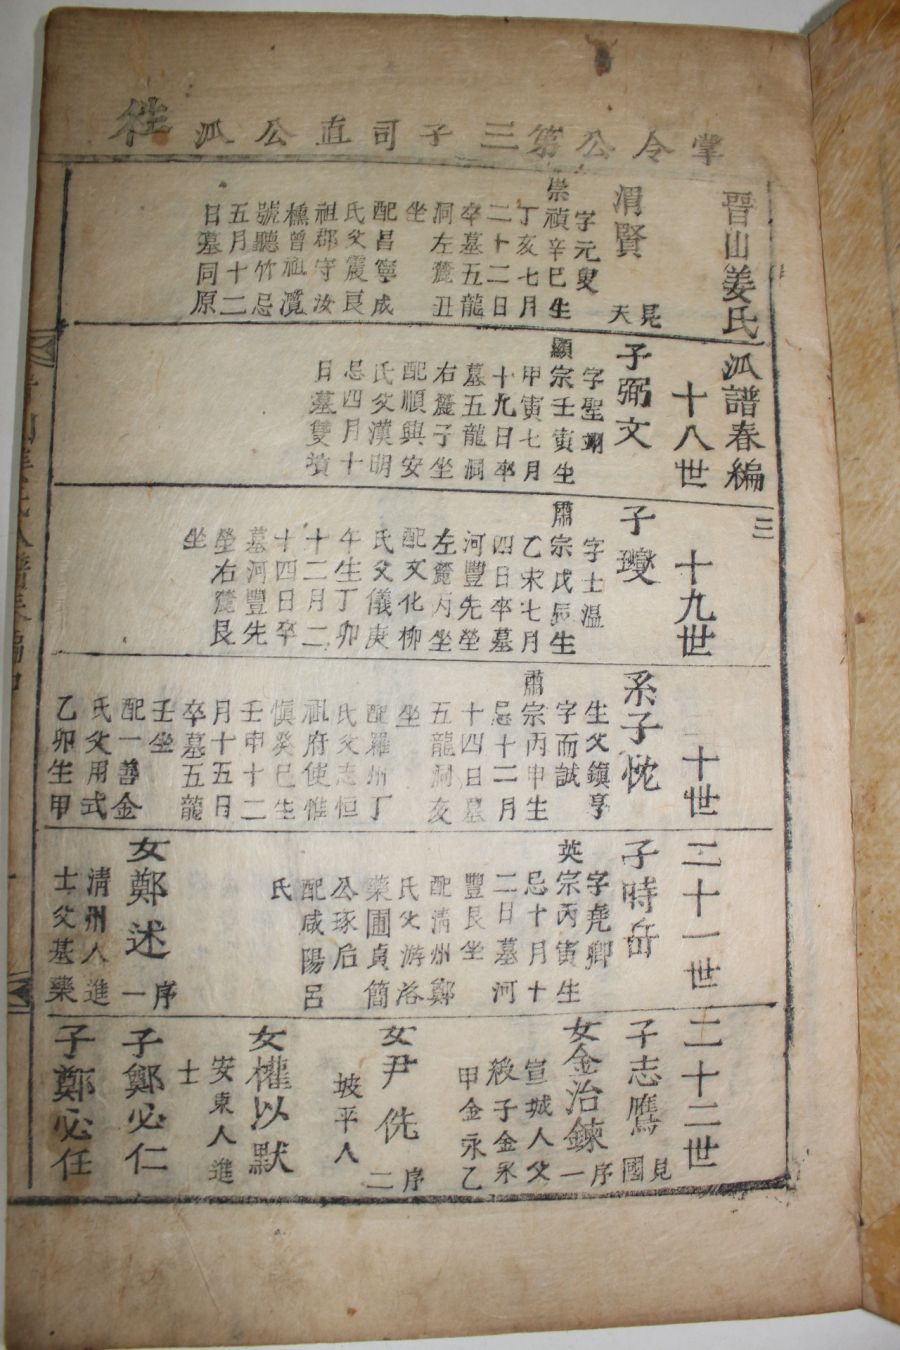 掌令公第三子司直公派
往
晋山姜氏派譜春編
三
渭賢
見天
字元叟
崇禎辛巳生
丁亥七月
二十二日
卒墓五龍
洞左麓丑
坐
配昌寧成
氏父震良
祖郡守汝
櫄曾祖濬
號聽竹忌
五月十二
日墓同原
十八世
子弼文
字聖翊
顯宗壬寅生
甲寅七月
十九日卒
墓五龍洞
右麓子坐
配順興安
氏父漢明
忌四月十
日墓雙墳
十九世
子㻶
字士温
肅宗戊辰生
乙未七月
四日卒墓
河豐先塋
左麓丙坐
配文化柳
氏父儀庚
午生丁卯
十二月二
十四日卒
墓河豐先
塋右麓艮
坐
二十世
系子忱
生父鎮亨
字而誠
肅宗丙申生
忌十二月
十四日墓
五龍洞亥
坐
配羅州丁
氏父志恒
祖府使惟
愼癸巳生
壬申十二
月十五日
卒墓五龍
壬坐
配一善金
氏父用式
乙卯生甲
二十一世
子時岳
字堯卿
英宗丙寅生
忌十月十
二日墓河
豐艮坐
配清州鄭
氏父游洛
藥圃貞簡
公琢后
配咸陽呂
氏
女鄭述
序一
清州人進
士父基欒
二十二世
子志鷹
見國
女金治鍊
序一
宣城人父
緩子金永
甲金永乙
女尹侁
序二
坡平人
女權以默
安東人進
士
子鄭必仁
子鄭必任